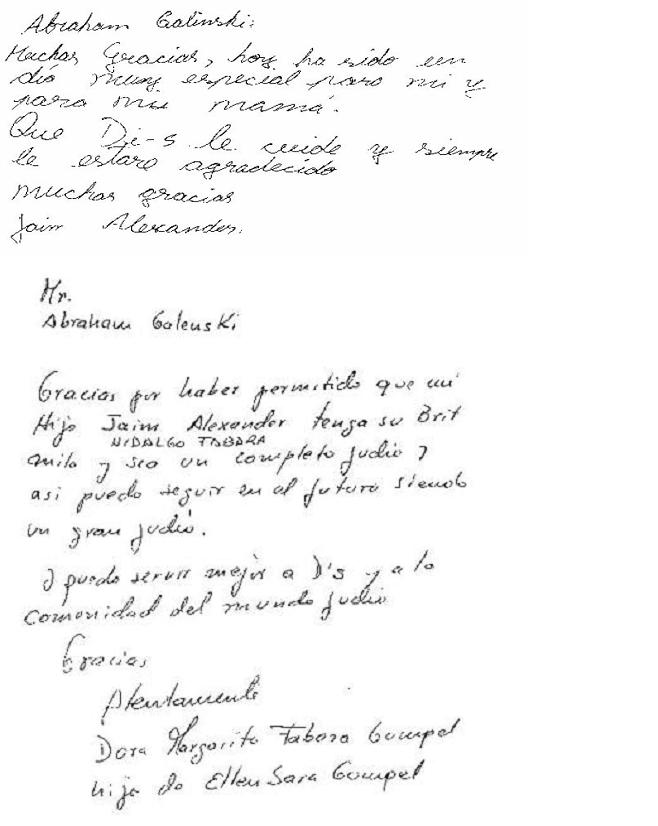 Abraham Galinski:
Muchas Gracias, hoy ha sido un
día muy especial para mi y
para mi mamá.
Que Di-s le cuide y siempre
le estare agradecido
muchas gracias
Jaim Alexander.
Mr.
Abraham Galenski
Gracias por haber permitido que mi
Hijo Jaim Alexander tenga su Brit
HIDALGO TABARA
mila y sea un completo judio y
asi puedo seguir en al futuro siendo
un gran judio.
y puedo servir mejor a D's y a la
comonidad del mundo judio
Gracias
Atentamente
Dora Margarita Tabora Gompel
hija de Ellen Sara Gompel